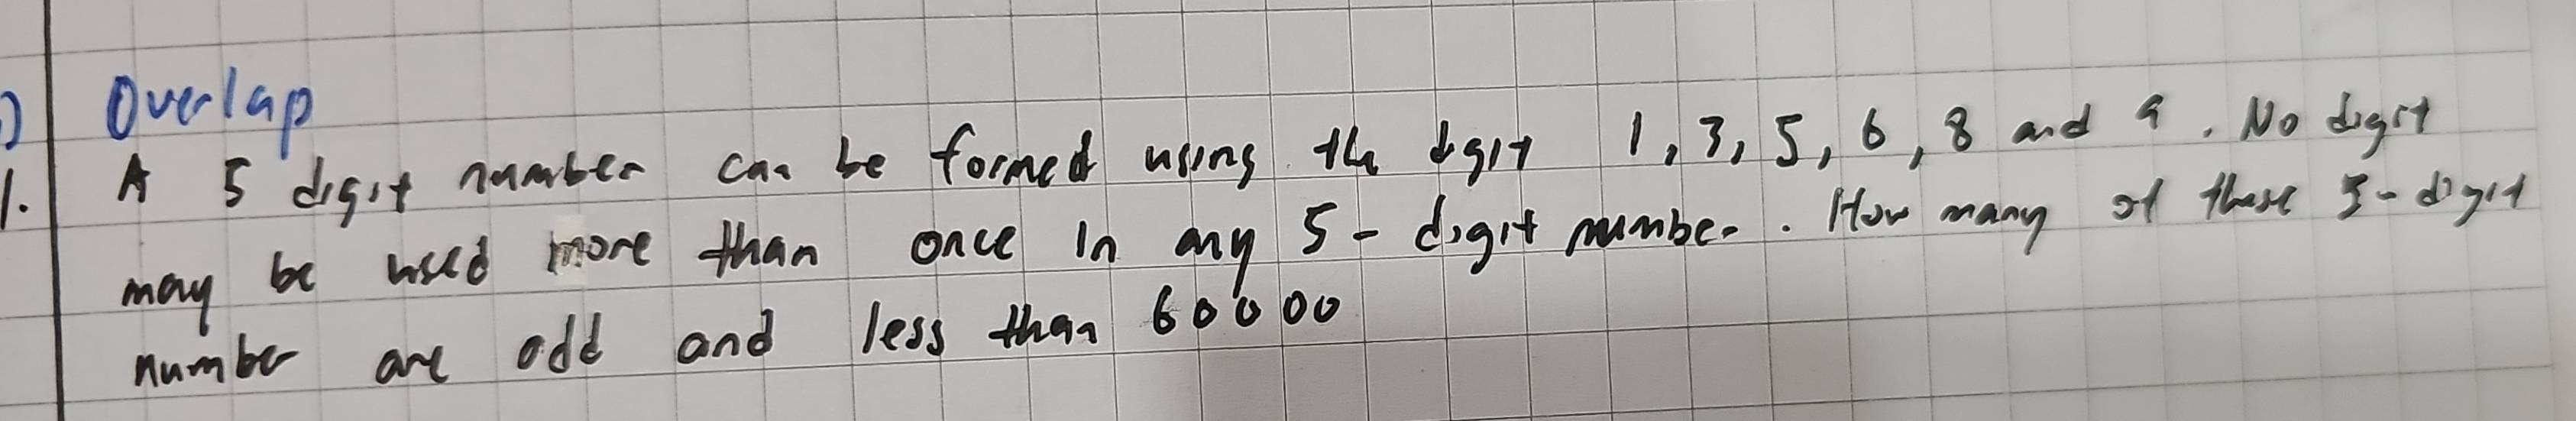 ) Overlap
1. A 5 digit number can be formed using the digit 1, 3, 5, 6, 8 and 9. No digit
may be used more than once in any 5-digit number. How many of these 5-digit
number are odd and less than 60000